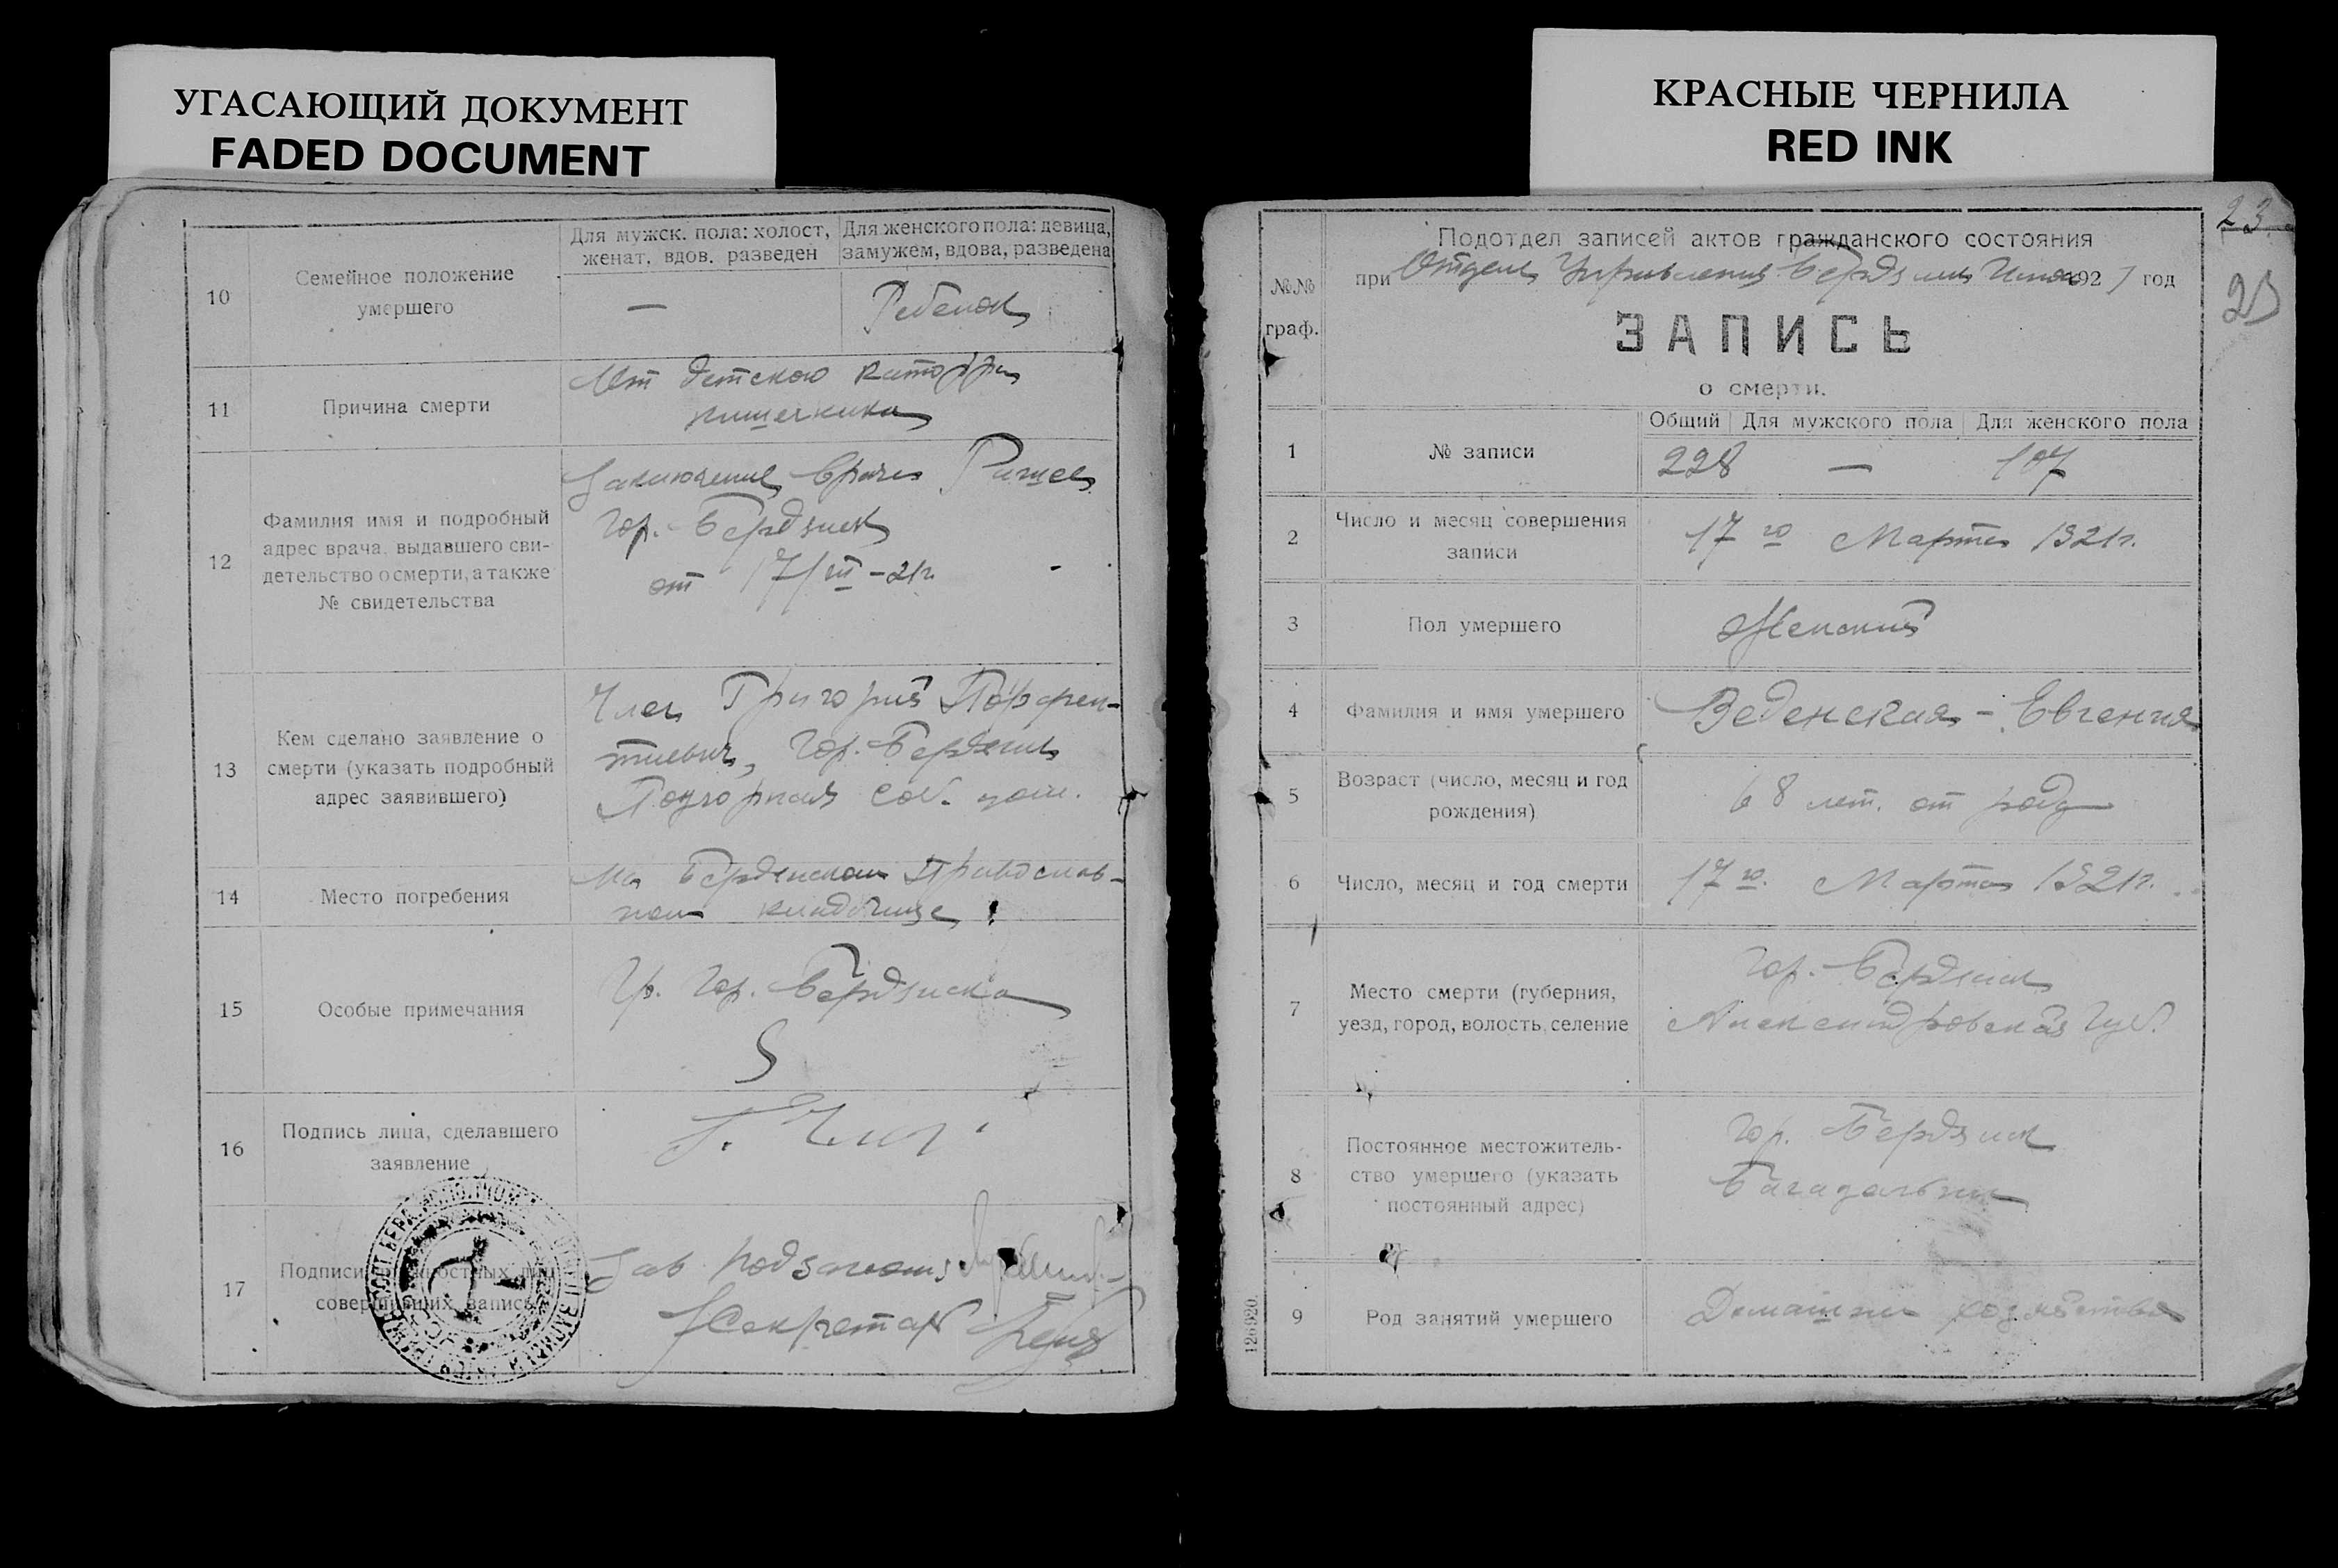 УГАСАЮЩИЙ ДОКУМЕНТ
FADED DOCUMENT
10
Семейное положение
умершего
Для мужск. пола: холост,
женат, вдов. разведен
Для женского пола: девица,
замужем, вдова, разведена
—
Ребенок
11
Причина смерти
От детского катарра
кишечника
12
Фамилия имя и подробный
адрес врача, выдавшего сви-
детельство о смерти, а также
№ свидетельства
Заключение врача
Гор. Бердянск
от 17/III–21г.
13
Кем сделано заявление о
смерти (указать подробный
адрес заявившего)
Григорий
Гор. Бердянск
Подгорная соб. дом.
14
Место погребения
На Бердянском Православ-
ном кладбище
15
Особые примечания
Гр. Гор. Бердянска
16
Подпись лица, сделавшего
заявление
17
Подписи должностных лиц
совершивших запись
Зав. подзагсом
Секретарь
КРАСНЫЕ ЧЕРНИЛА
RED INK
23
23
№№
граф.
Подотдел записей актов гражданского состояния
при Отделе Управления Бердянск 1921 год
ЗАПИСЬ
о смерти.
1
№ записи
Общий
Для мужского пола
Для женского пола
228
—
107
2
Число и месяц совершения
записи
17го Марта 1921г.
3
Пол умершего
Женский
4
Фамилия и имя умершего
Веденская - Евгения
5
Возраст (число, месяц и год
рождения)
68 лет. от роду
6
Число, месяц и год смерти
17го Марта 1921г.
7
Место смерти (губерния,
уезд, город, волость, селение
Гор. Бердянск
Александровская Губ.
8
Постоянное местожитель-
ство умершего (указать
постоянный адрес)
Гор. Бердянск
9
Род занятий умершего
Домашнее хозяйство
126920.